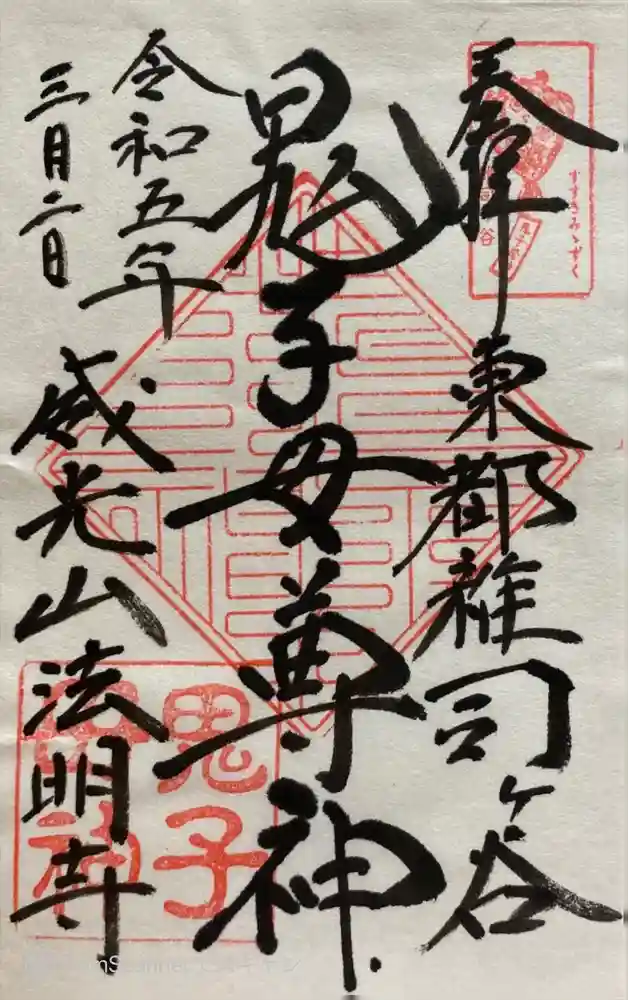 奉拝
東都雑司ヶ谷
鬼子母尊神
令和五年
三月二日
威光山法明寺
すすきみゝずく
鬼子
母神